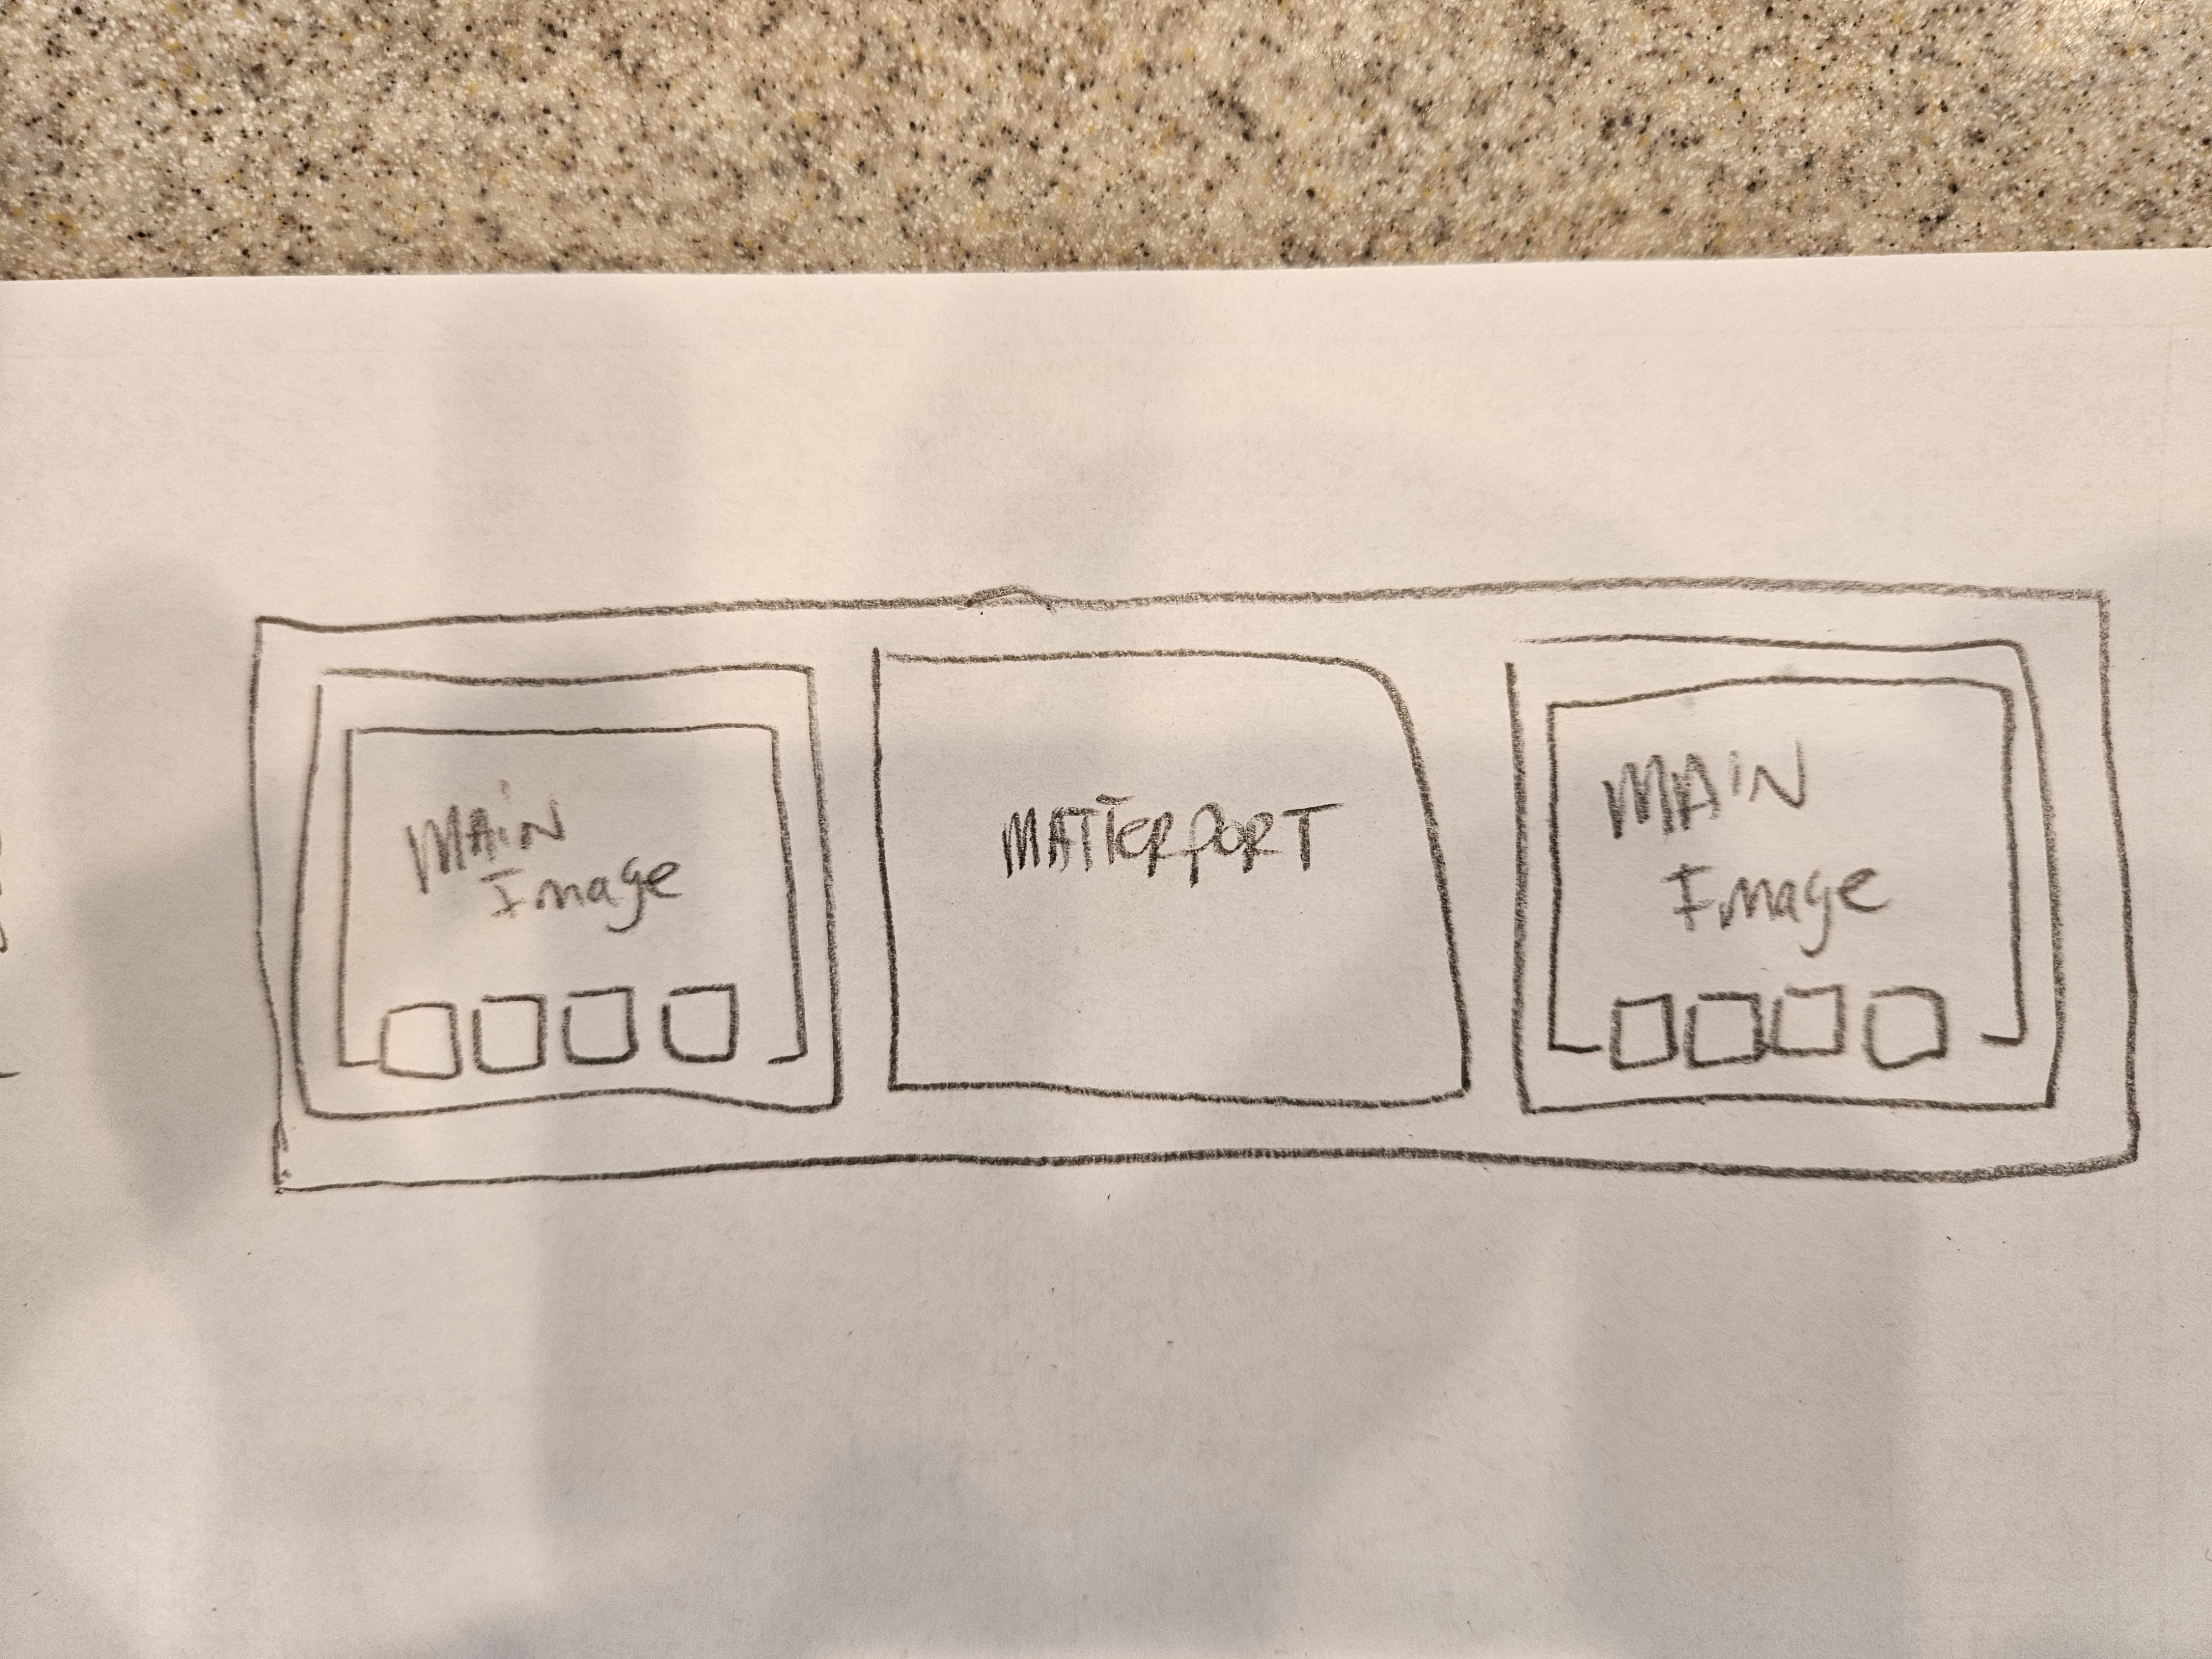 MAiN
Image
MATTERPORT
MAIN
Image